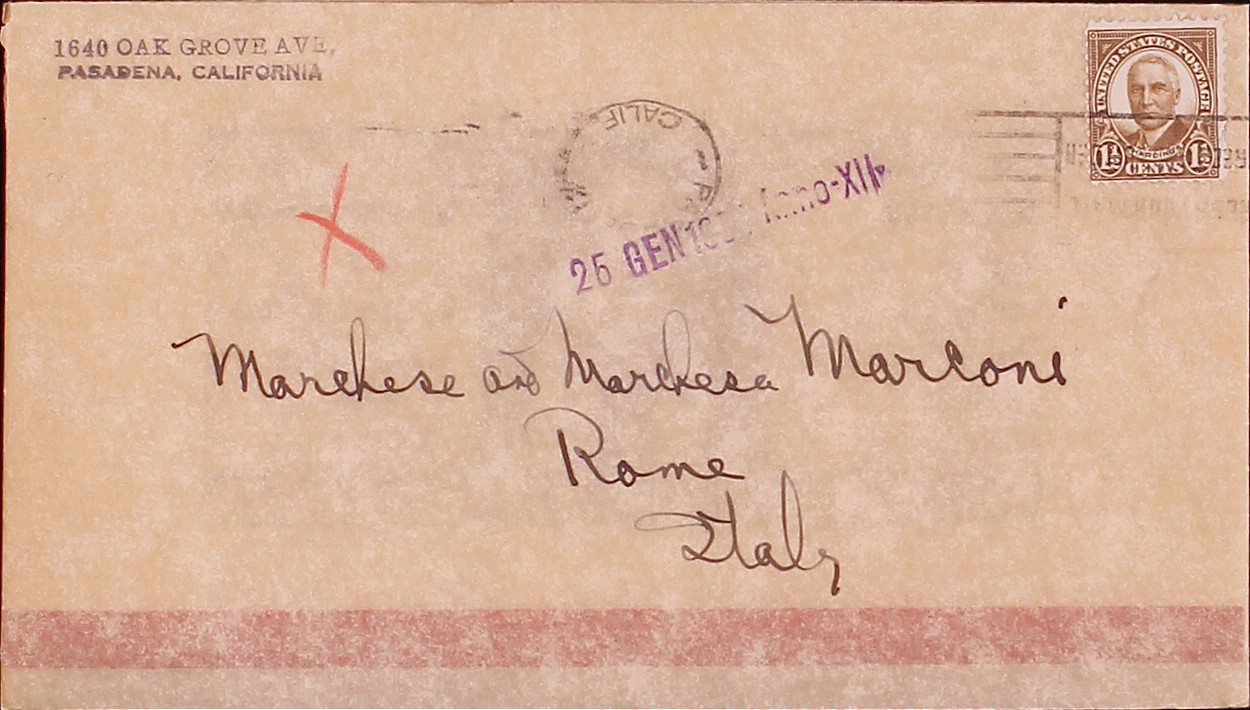 1640 OAK GROVE AVE,
PASADENA, CALIFORNIA
UNITED STATES POSTAGE
HARDING
1½ CENTS 1½
CALIF
25 GEN Anno-XII
Marchese and Marchesa Marconi
Rome
Italy